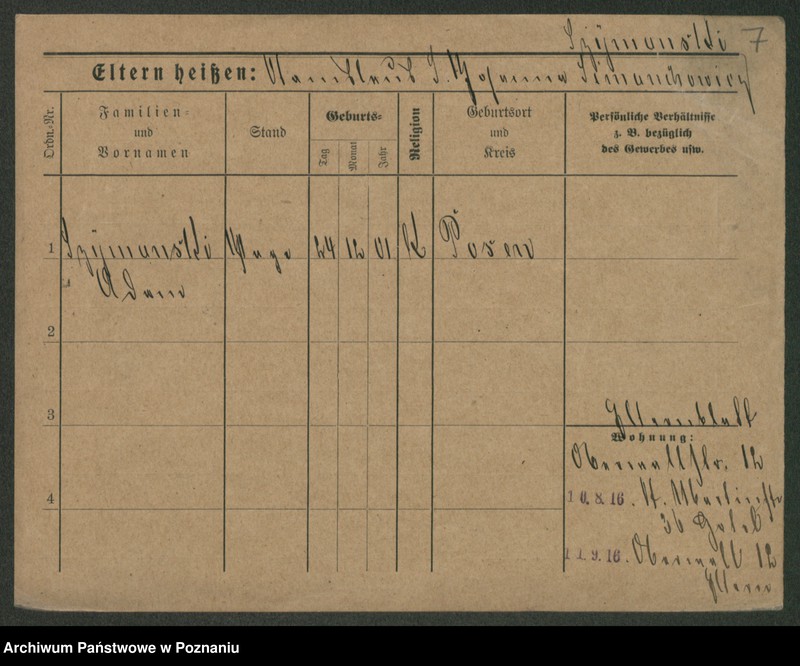 Szymanski 7
Eltern heißen: Stanislaus u. Johanna Simanchowicz
Ordn.-Nr.
Familien-
und
Vornamen
Stand
Geburts-
Tag
Monat
Jahr
Religion
Geburtsort
und
Kreis
Persönliche Verhältnisse
z. B. bezüglich
des Gewerbes usw.
1 Szymanski 24 12 01 K Posen
Adam
2
3
Elternblatt
Wohnung:
Oberwallstr. 12
4
10.8.16. St. Martinstr
36
11.9.16. Oberwall 12
Eltern
Archiwum Państwowe w Poznaniu